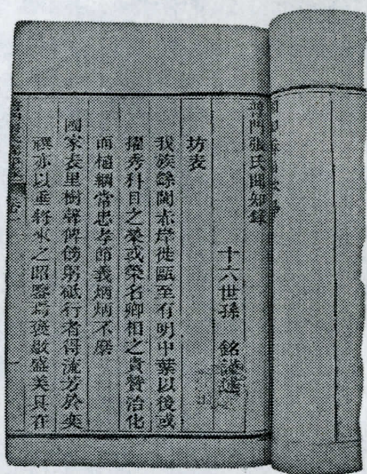 普門張氏聞知錄
十六世孫 銘 述
坊表
我族繇閩赤岸徙甌至有明中葉以後或
擢秀科目之榮或榮名卿相之貴贊治化
而植綱常忠孝節義炳炳不磨
國家表里樹聲俾傍躬砥行者得流芳於奕
禩亦以垂將來之昭鑒焉猗歟盛美具在